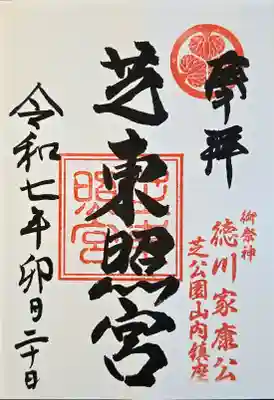 奉拝
御祭神
徳川家康公
芝公園山内鎮座
芝東照宮
芝東照宮
令和七年卯月二十日